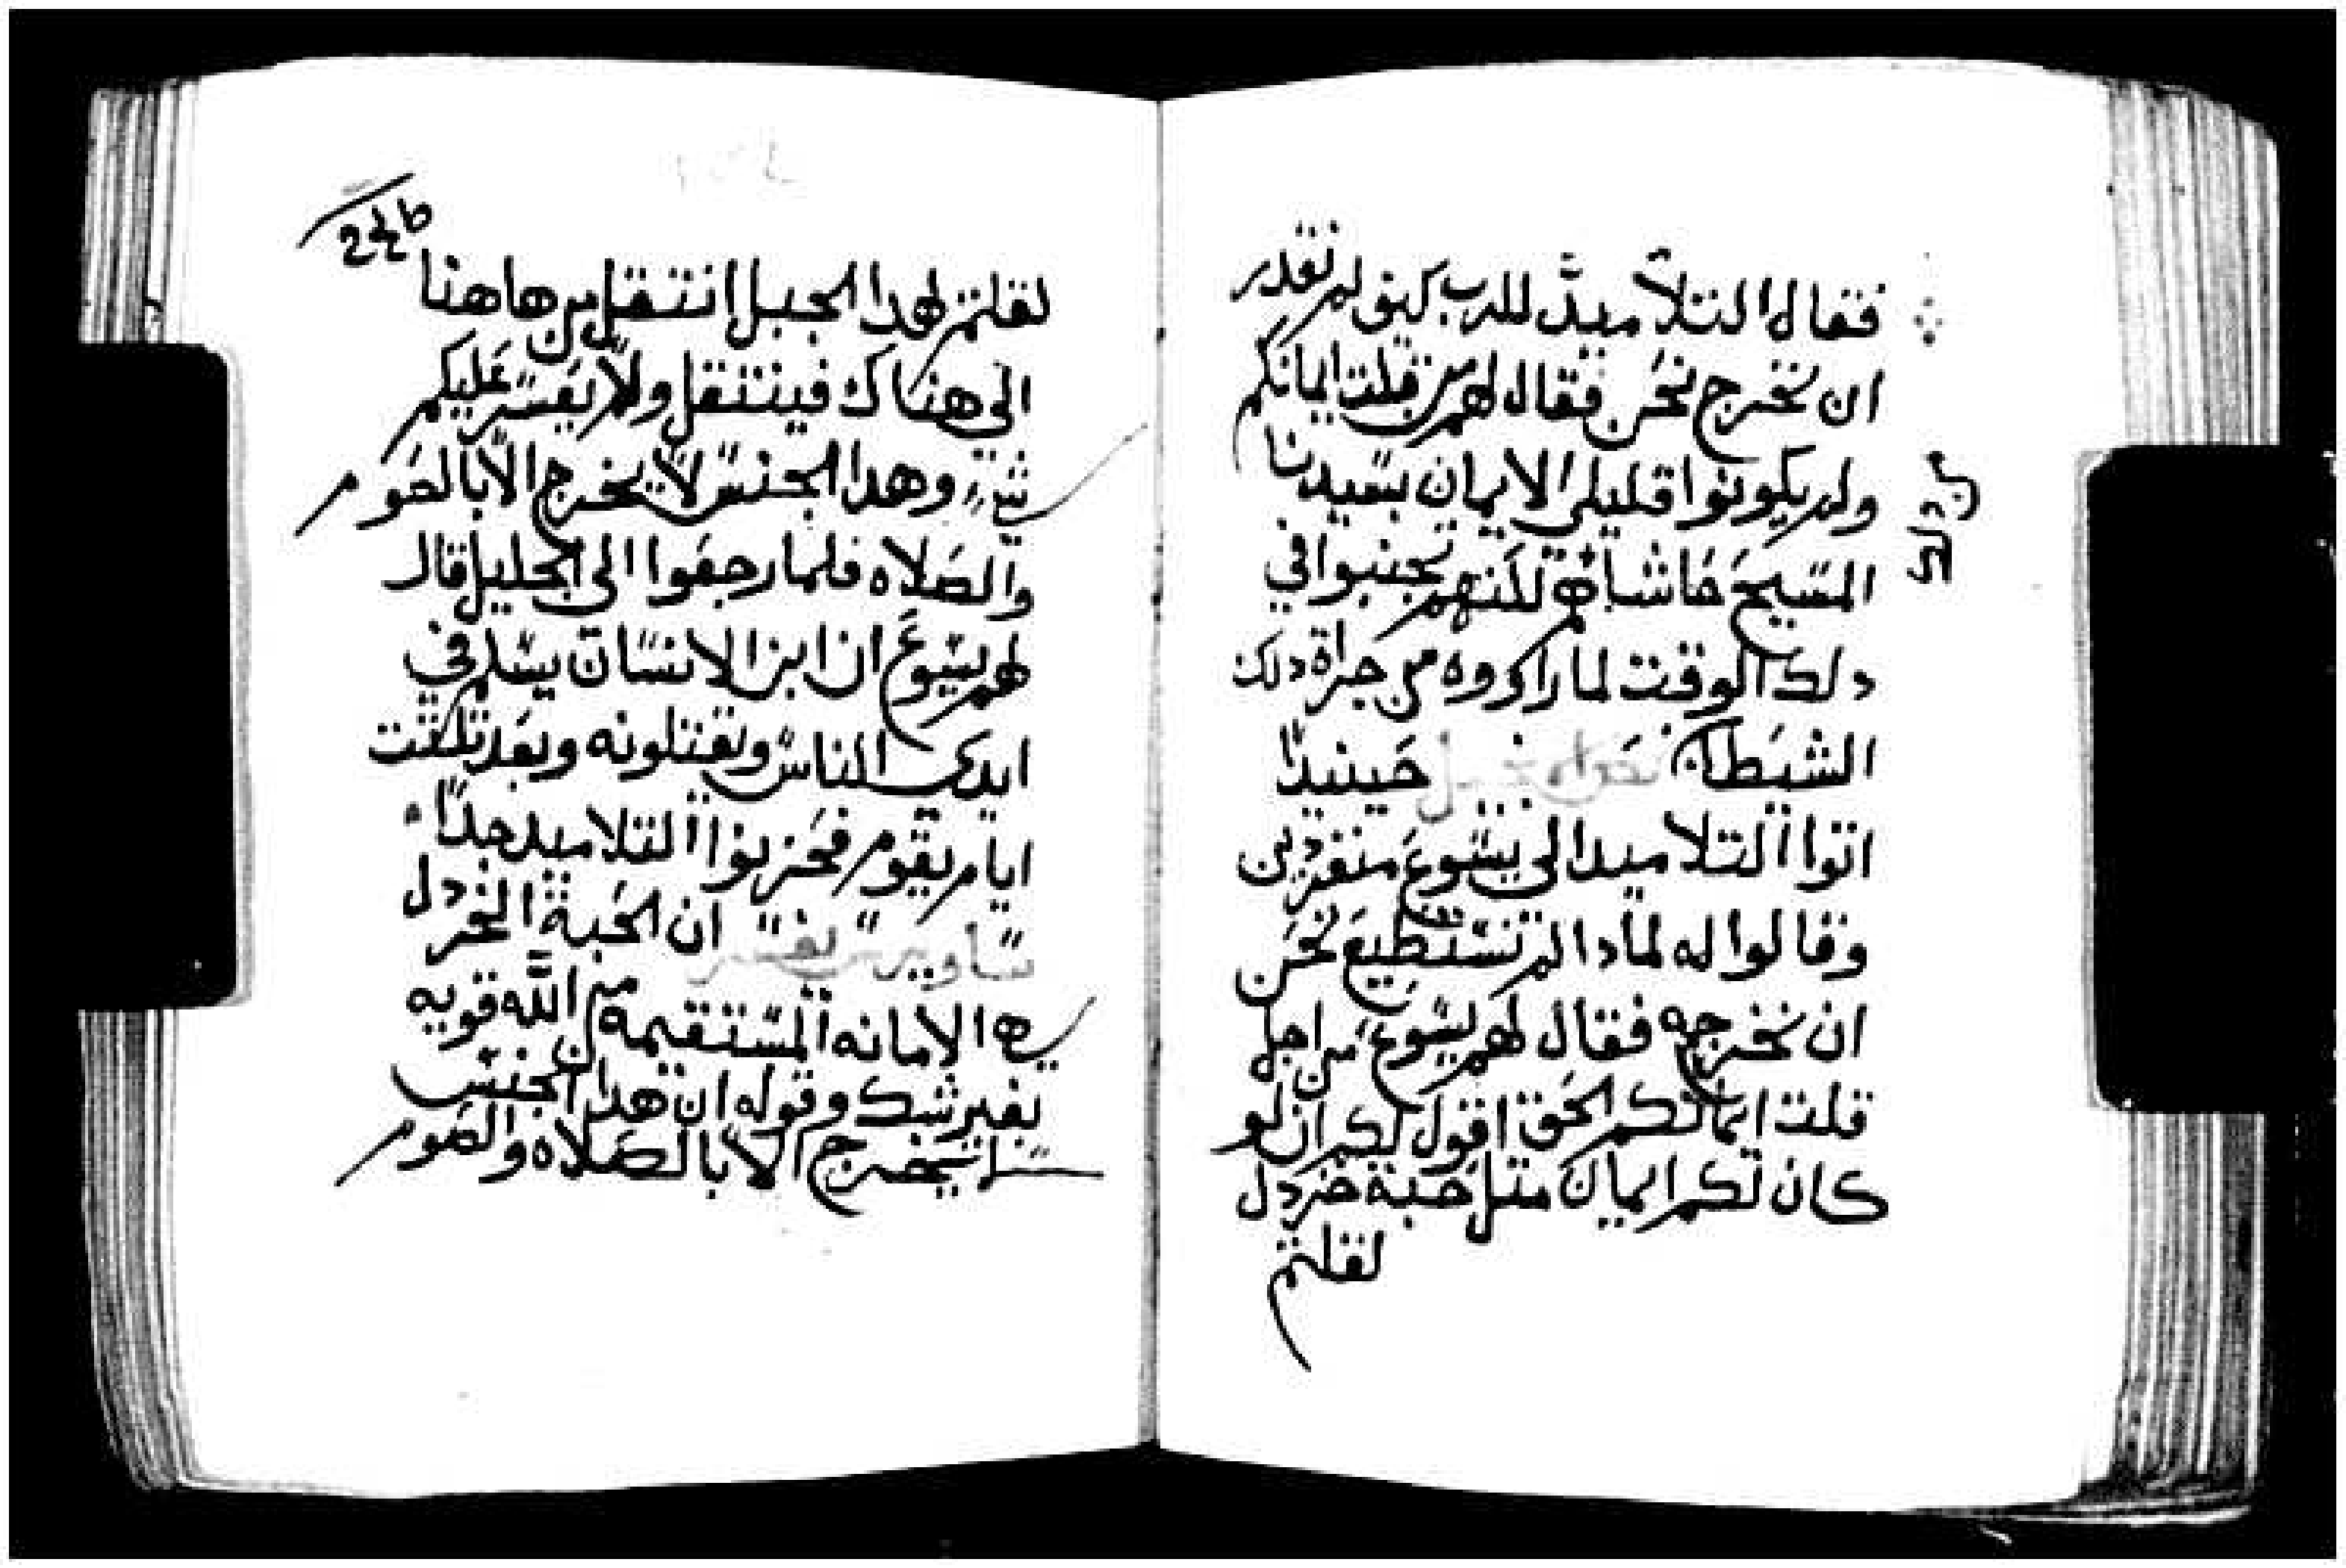 فقالوا التلاميد للرب كيف لم نقدر
ان نخرج نحن فقال لهم من قلت ايمانكم
ولم يكونوا قليلي الايمان بسيدنا
من دلك
المسيح حاشاهم لكنهم تجنبوا في
دلك الوقت لما راو وه من جراة دلك
الشيطان حينيدا
اتوا التلاميد الى يسوع منفردين
وقالوا له لمادا لم نستطيع نحن
ان نخرجه فقال لهم يسوع من اجل
قلت ايمانكم الحق اقول لكم ان لو
كان لكم ايمان متل حبة خردل
لقلتم
لقلتم لهدا الجبل انتقل من هاهنا
الى هناك فينتقل ولا يعسر عليكم
شيء وهدا الجنس لا يخرج الا بالصوم
والصلاه فلما رجعوا الى الجليل قال
لهم يسوع ان ابن الانسان يسلم في
ايدي الناس ويقتلونه وبعد تلتت
ايام يقوم فحزنوا التلاميد جدا
ساويرس يفسر ان الحبة الخردل
ها الامانه المستقيمه من الله قويه
بغير شك وقوله ان هدا الجنس
يخرج الا بالصلاه والصوم